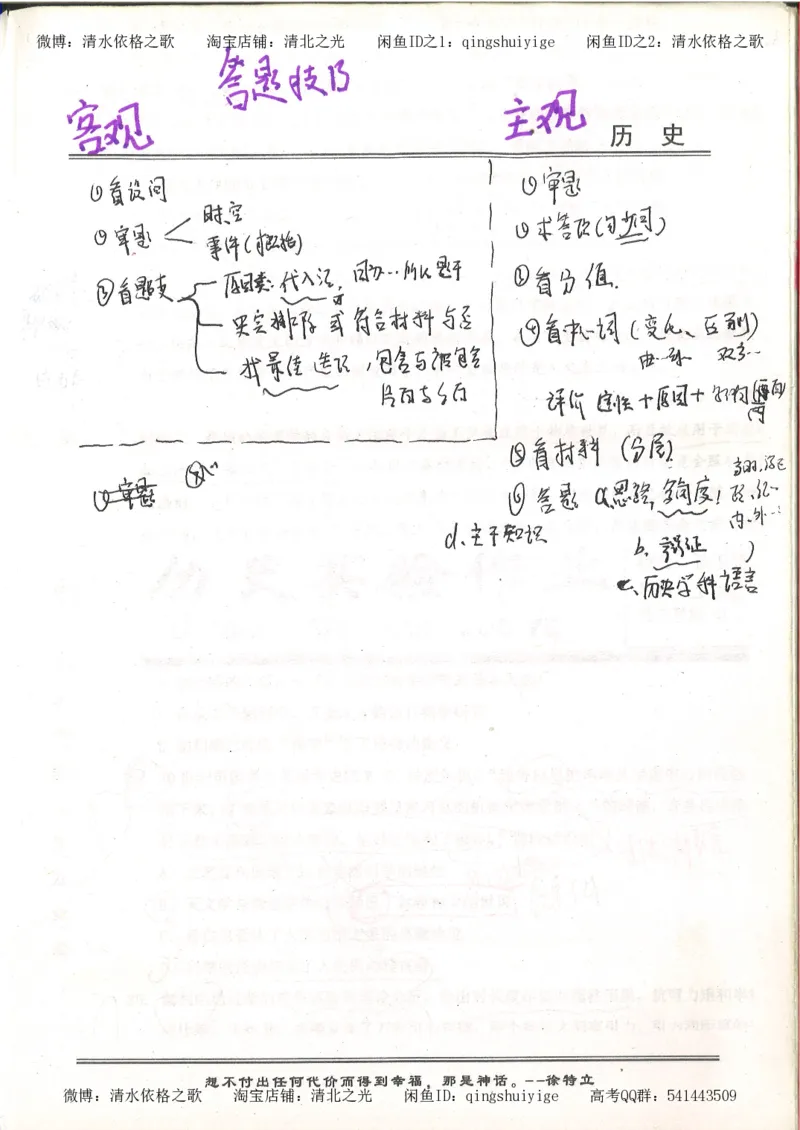 微博：清水依格之歌 淘宝店铺：清北之光 闲鱼ID之1：qingshuiyige 闲鱼ID之2：清水依格之歌
答题技巧
客观
主观
历 史
①看设问
②审题
时空
事件(概括)
③看题支
原因类：代入法，因为…所以题干
果定排除 或 符合材料与否
找最佳选项，包含与被包含
片面与全面
①审题
②求答项(句号间)
③看分值.
④看中心词 (变化、区别)
由…到…
双方…
评价 定性＋原因＋
两
⑤看材料 (分层)
⑥答题 a.思路, 多角度!
内.外…
b.
c、历史学科语言
d、主干知识
①审题
想不付出任何代价而得到幸福，那是神话。--徐特立
微博：清水依格之歌 淘宝店铺：清北之光 闲鱼ID：qingshuiyige 高考QQ群：541443509